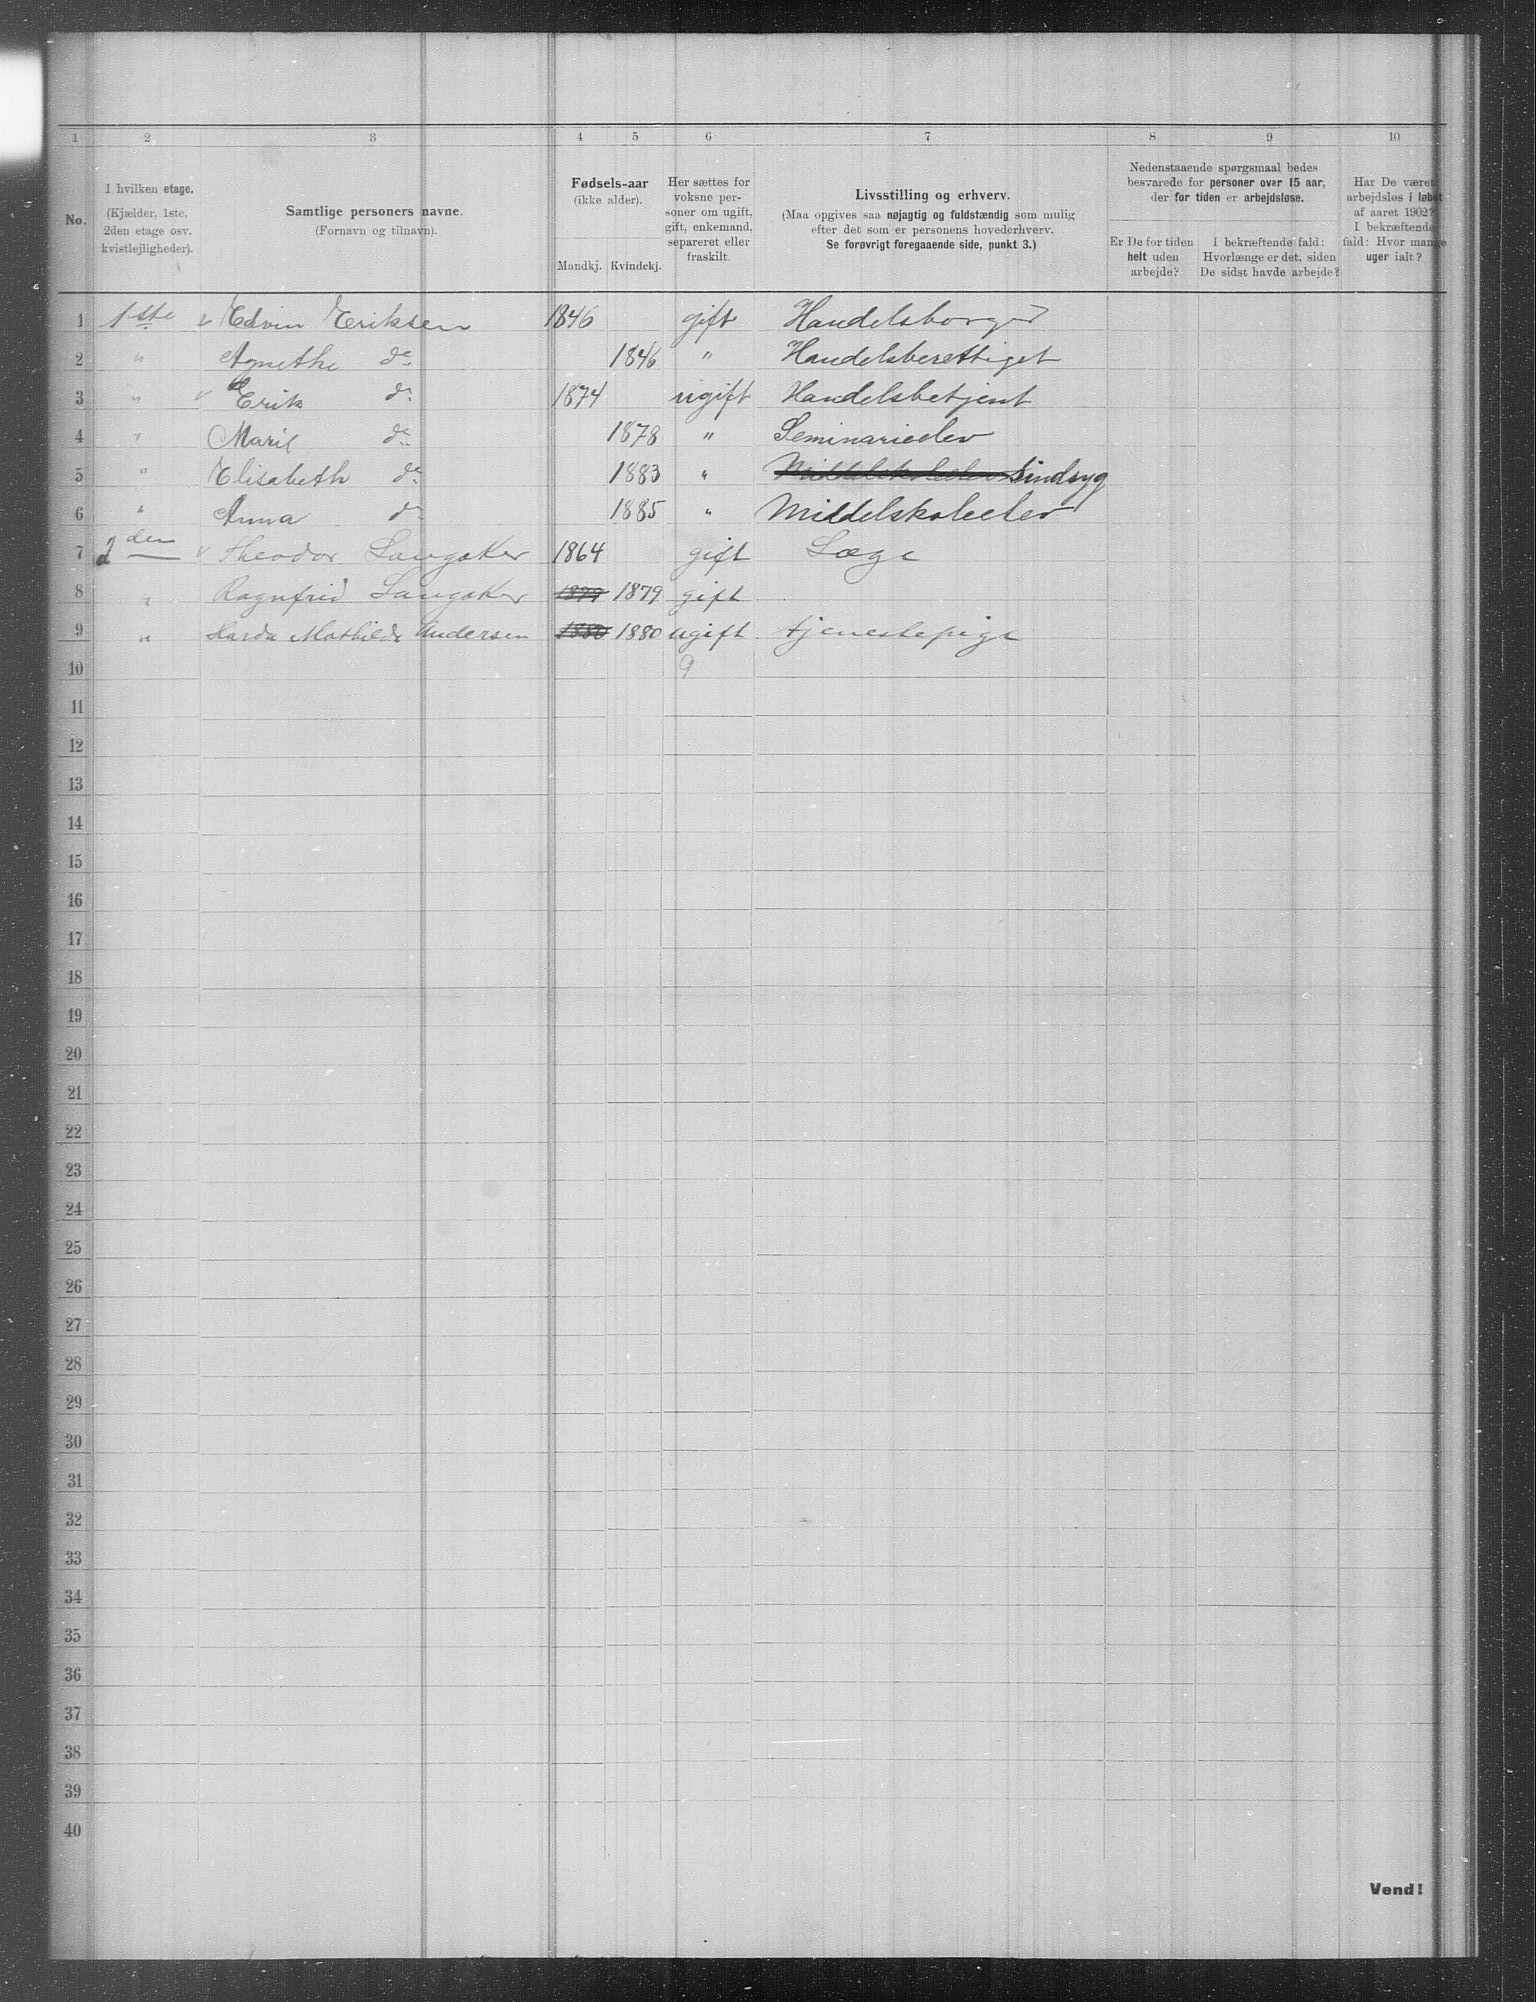 1 2 3 4 5 6 7 8 9 10
No.
I hvilken etage.
(Kjælder, 1ste,
2den etage osv.
kvistlejligheder).
Samtlige personers navne.
(Fornavn og tilnavn).
Fødsels-aar
(ikke alder).
Mandkj. Kvindekj.
Her sættes for
voksne per-
soner om ugift,
gift, enkemand,
separeret eller
fraskilt.
Livsstilling og erhverv.
(Maa opgives saa nøjagtig og fuldstændig som mulig
efter det som er personens hovederhverv.
Se forøvrigt foregaaende side, punkt 3.)
Nedenstaaende spørgsmaal bedes
besvarede for personer over 15 aar,
der for tiden er arbejdsløse.
Er De for tiden
helt uden
arbejde?
I bekræftende fald:
Hvorlænge er det, siden
De sidst havde arbejde?
Har De været
arbejdsløs i løbet
af aaret 1902?
I bekræftende
fald: Hvor mange
uger ialt?
1 1ste Edvin Eriksen 1846 gift Handelsborger
2 " Agnethe do 1846 " Handelsberettiget
3 " Erik do 1874 ugift Handelsbetjent
4 " Marie do 1878 " Seminarieelev
5 " Elisabeth do 1883 " Middelskoleelev Sindsyg
6 " Anna do 1885 " Middelskoleelev
7 2den Theodor Langaker 1864 gift Læge
8 " Ragnfrid Langaker 1879 1879 gift
9 " Mathilde Andersen 1880 1880 ugift tjenestepige
10 9
11
12
13
14
15
16
17
18
19
20
21
22
23
24
25
26
27
28
29
30
31
32
33
34
35
36
37
38
39
40
Vend!